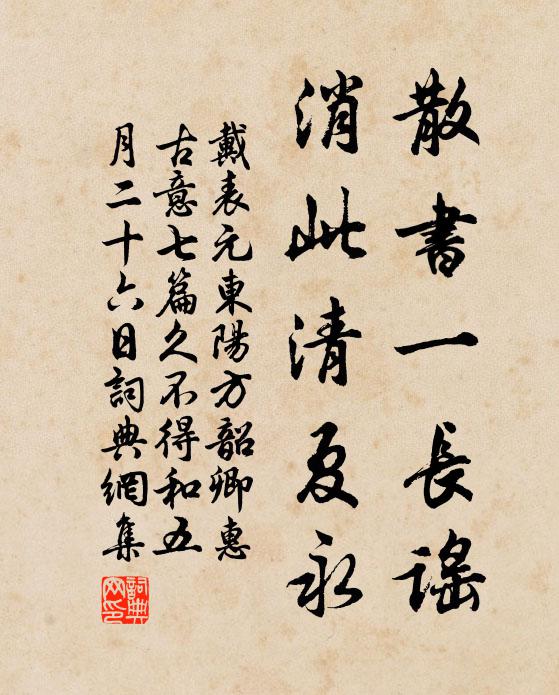 散書一長謠
消此清夏永
戴表元東陽方韶卿惠
古意七篇久不得和五
月二十六日詞典網集
詞典網印